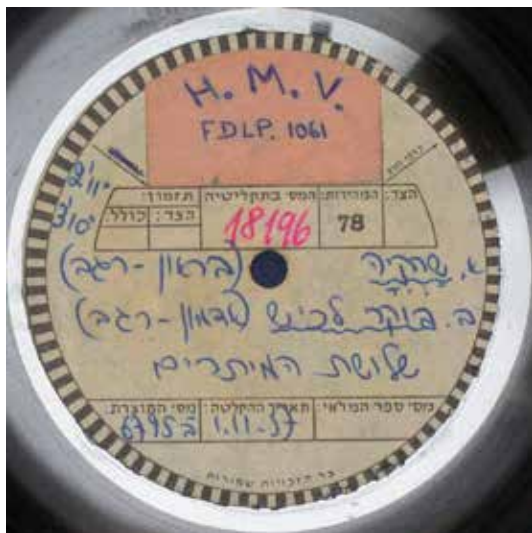 H. M. V.
FDLP. 1061
הצד: המהירות: המס' בתקליטיה תזמון:
78 18196 הצד: כולל:
2'11"
3'10"
א. שחקיה (בראון-רגב)
ב. בוקר לכיש (אדמון-רגב)
שלושת המיתרים
מס' ספר המלאי: תאריך ההקלטה: מס' המוצרת:
1.11.57 6795ב
כל הזכויות שמורות